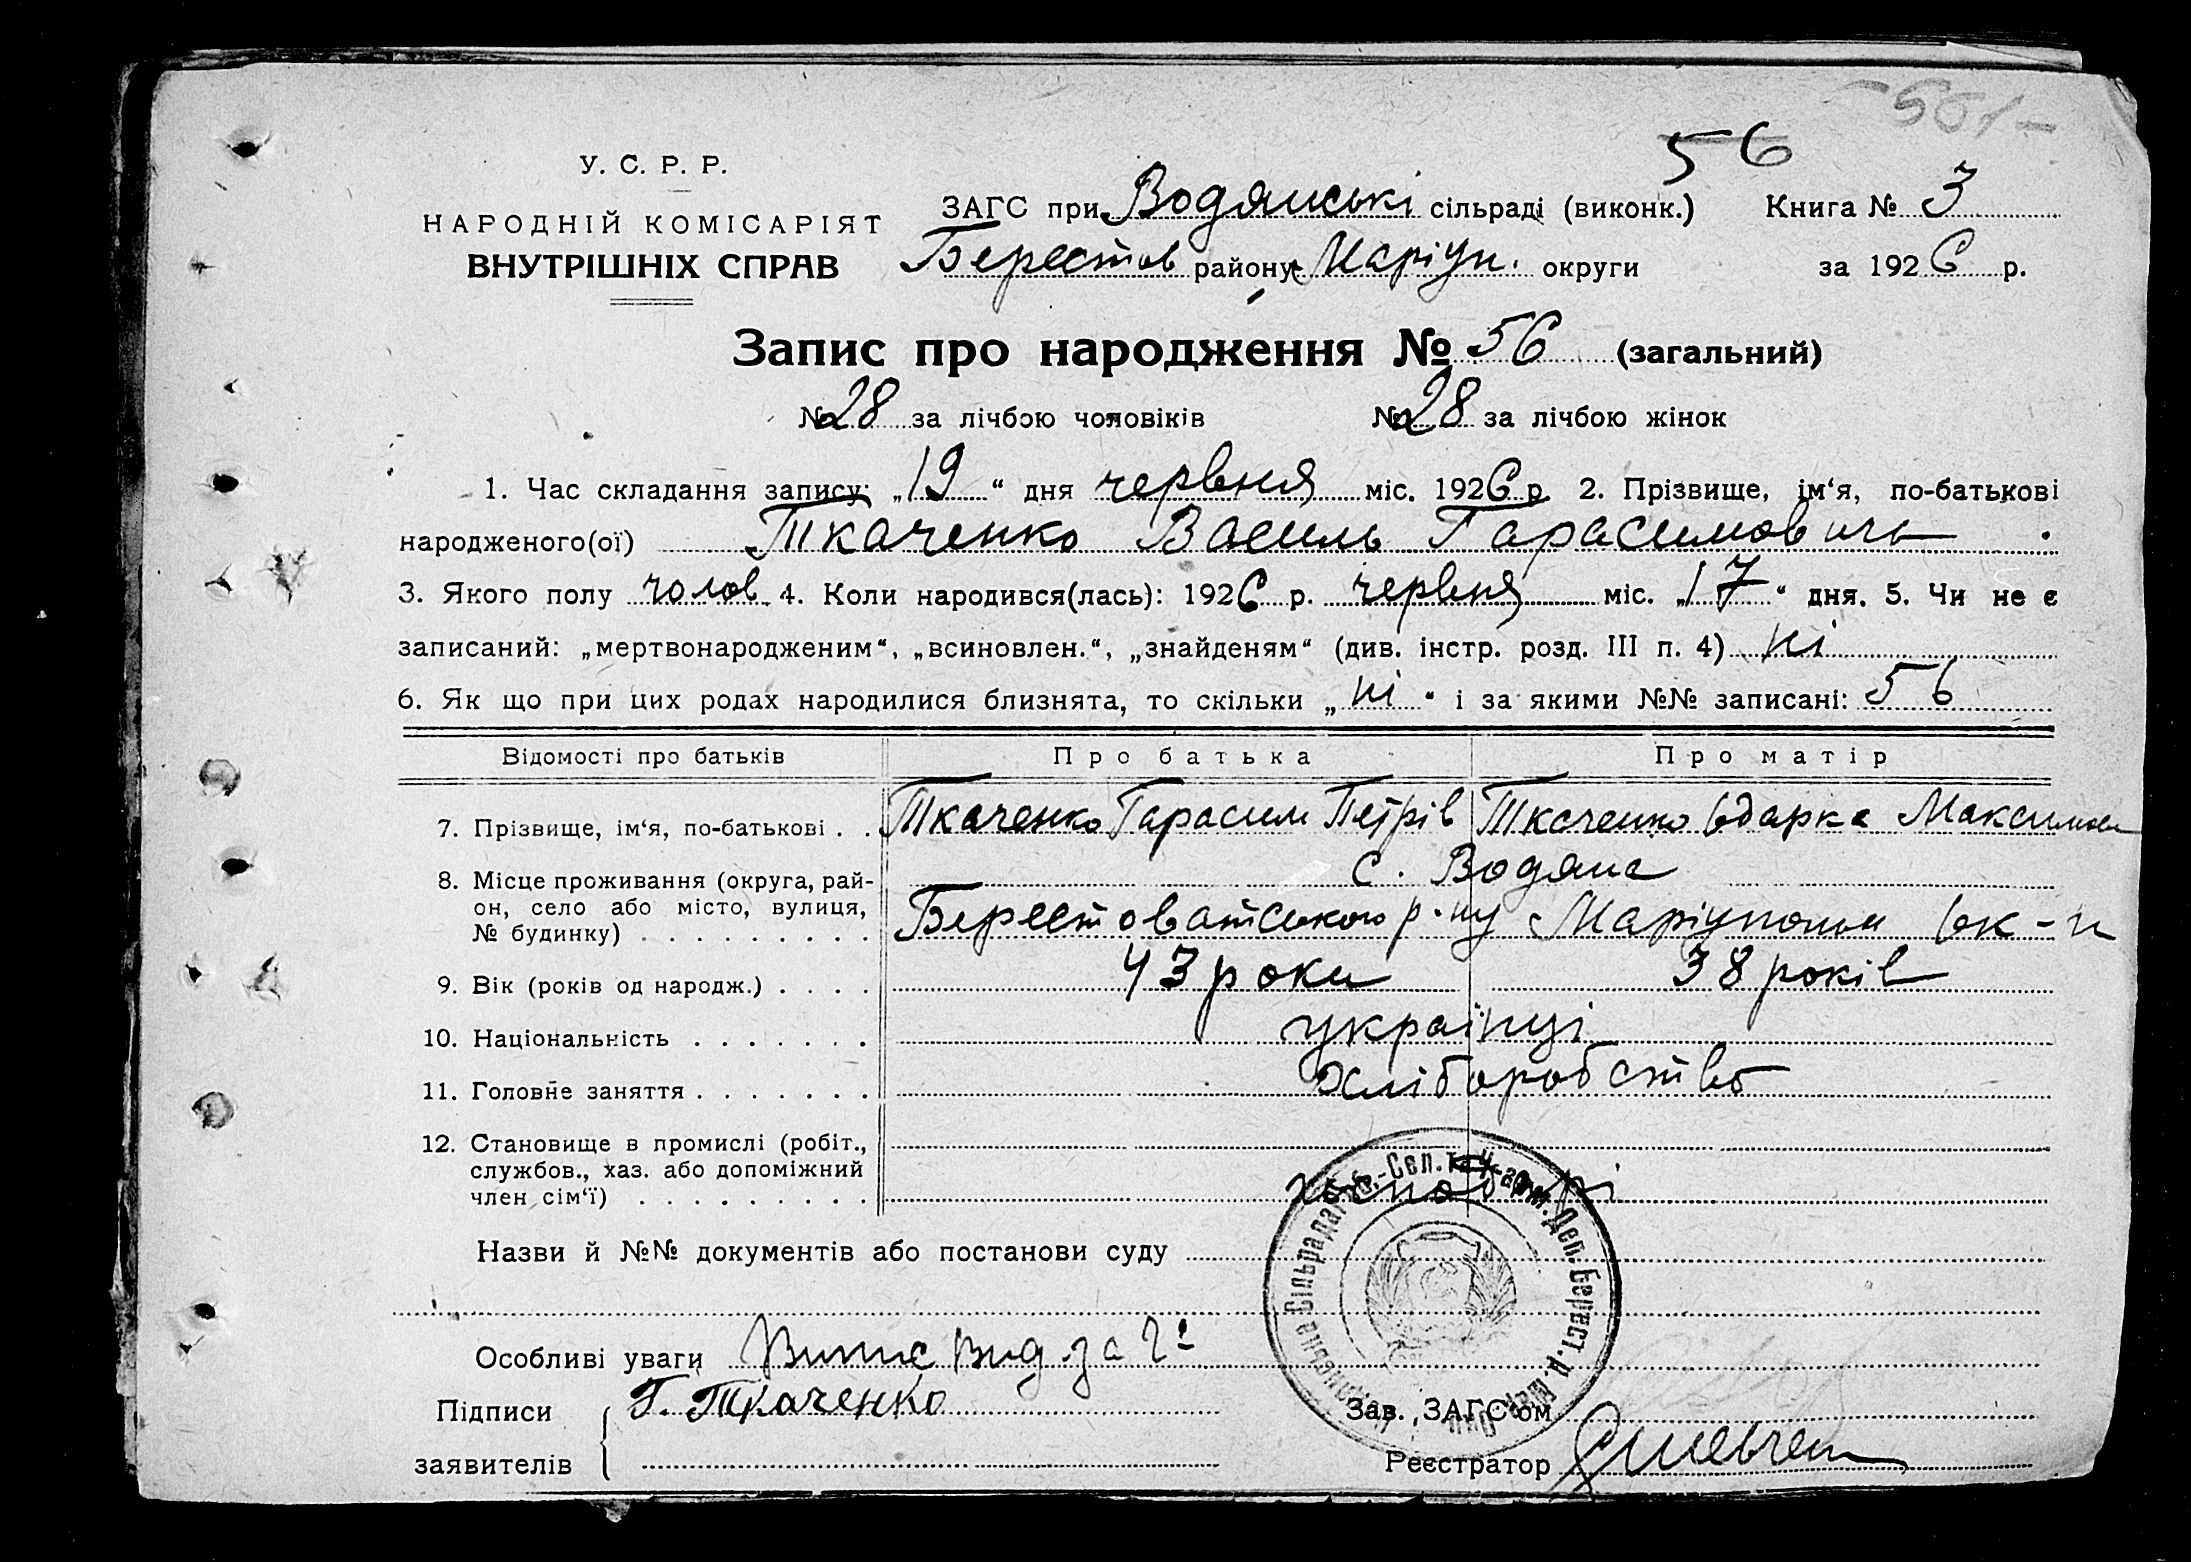 -561-
56
У. С. Р. Р.
НАРОДНІЙ КОМІСАРІЯТ
ВНУТРІШНІХ СПРАВ
ЗАГС при Водянські сільраді (виконк.) Книга № 3
Берестов району Маріуп. округи за 1926 р.
Запис про народження № 56 (загальний)
№ 28 за лічбою чоловіків № 28 за лічбою жінок
1. Час складання запису: „19“ дня червня міс. 1926 р. 2. Прізвище, ім‘я, по-батькові
народженого(ої) Ткаченко Василь Гарасимовичь
3. Якого полу чолов. 4. Коли народився(лась): 1926 р. червня міс. „17“ дня. 5. Чи не є
записаний: „мертвонародженим“, „всиновлен.“, „знайденям“ (див. інстр. розд. III п. 4) ні
6. Як що при цих родах народилися близнята, то скільки „ні“ і за якими №№ записані: 56
Відомості про батьків Про батька Про матір
7. Прізвище, ім‘я, по-батькові . . Ткаченко Гарасим Петрів Ткаченко Одарка Максимов
8. Місце проживання (округа, рай- с. Водяна
он, село або місто, вулиця, Берестоватського р-ну Маріупольск ок-и
№ будинку) . . . . . . . . .
9. Вік (років од народж.) . . . . 43 роки 38 років
10. Національність . . . . . . . українці
11. Головне заняття . . . . . . . хліборобство
12. Становище в промислі (робіт.,
службов., хаз. або допоміжний
член сім‘ї) . . . . . . . . . господарі
Назви й №№ документів або постанови суду
Особливі уваги
Підписи Г. Ткаченко Зав. ЗАГС‘ом
заявителів Реєстратор
Сільрада Роб.-Сел. та Ч-арм. Деп. Берест. р. Мар. Окр.